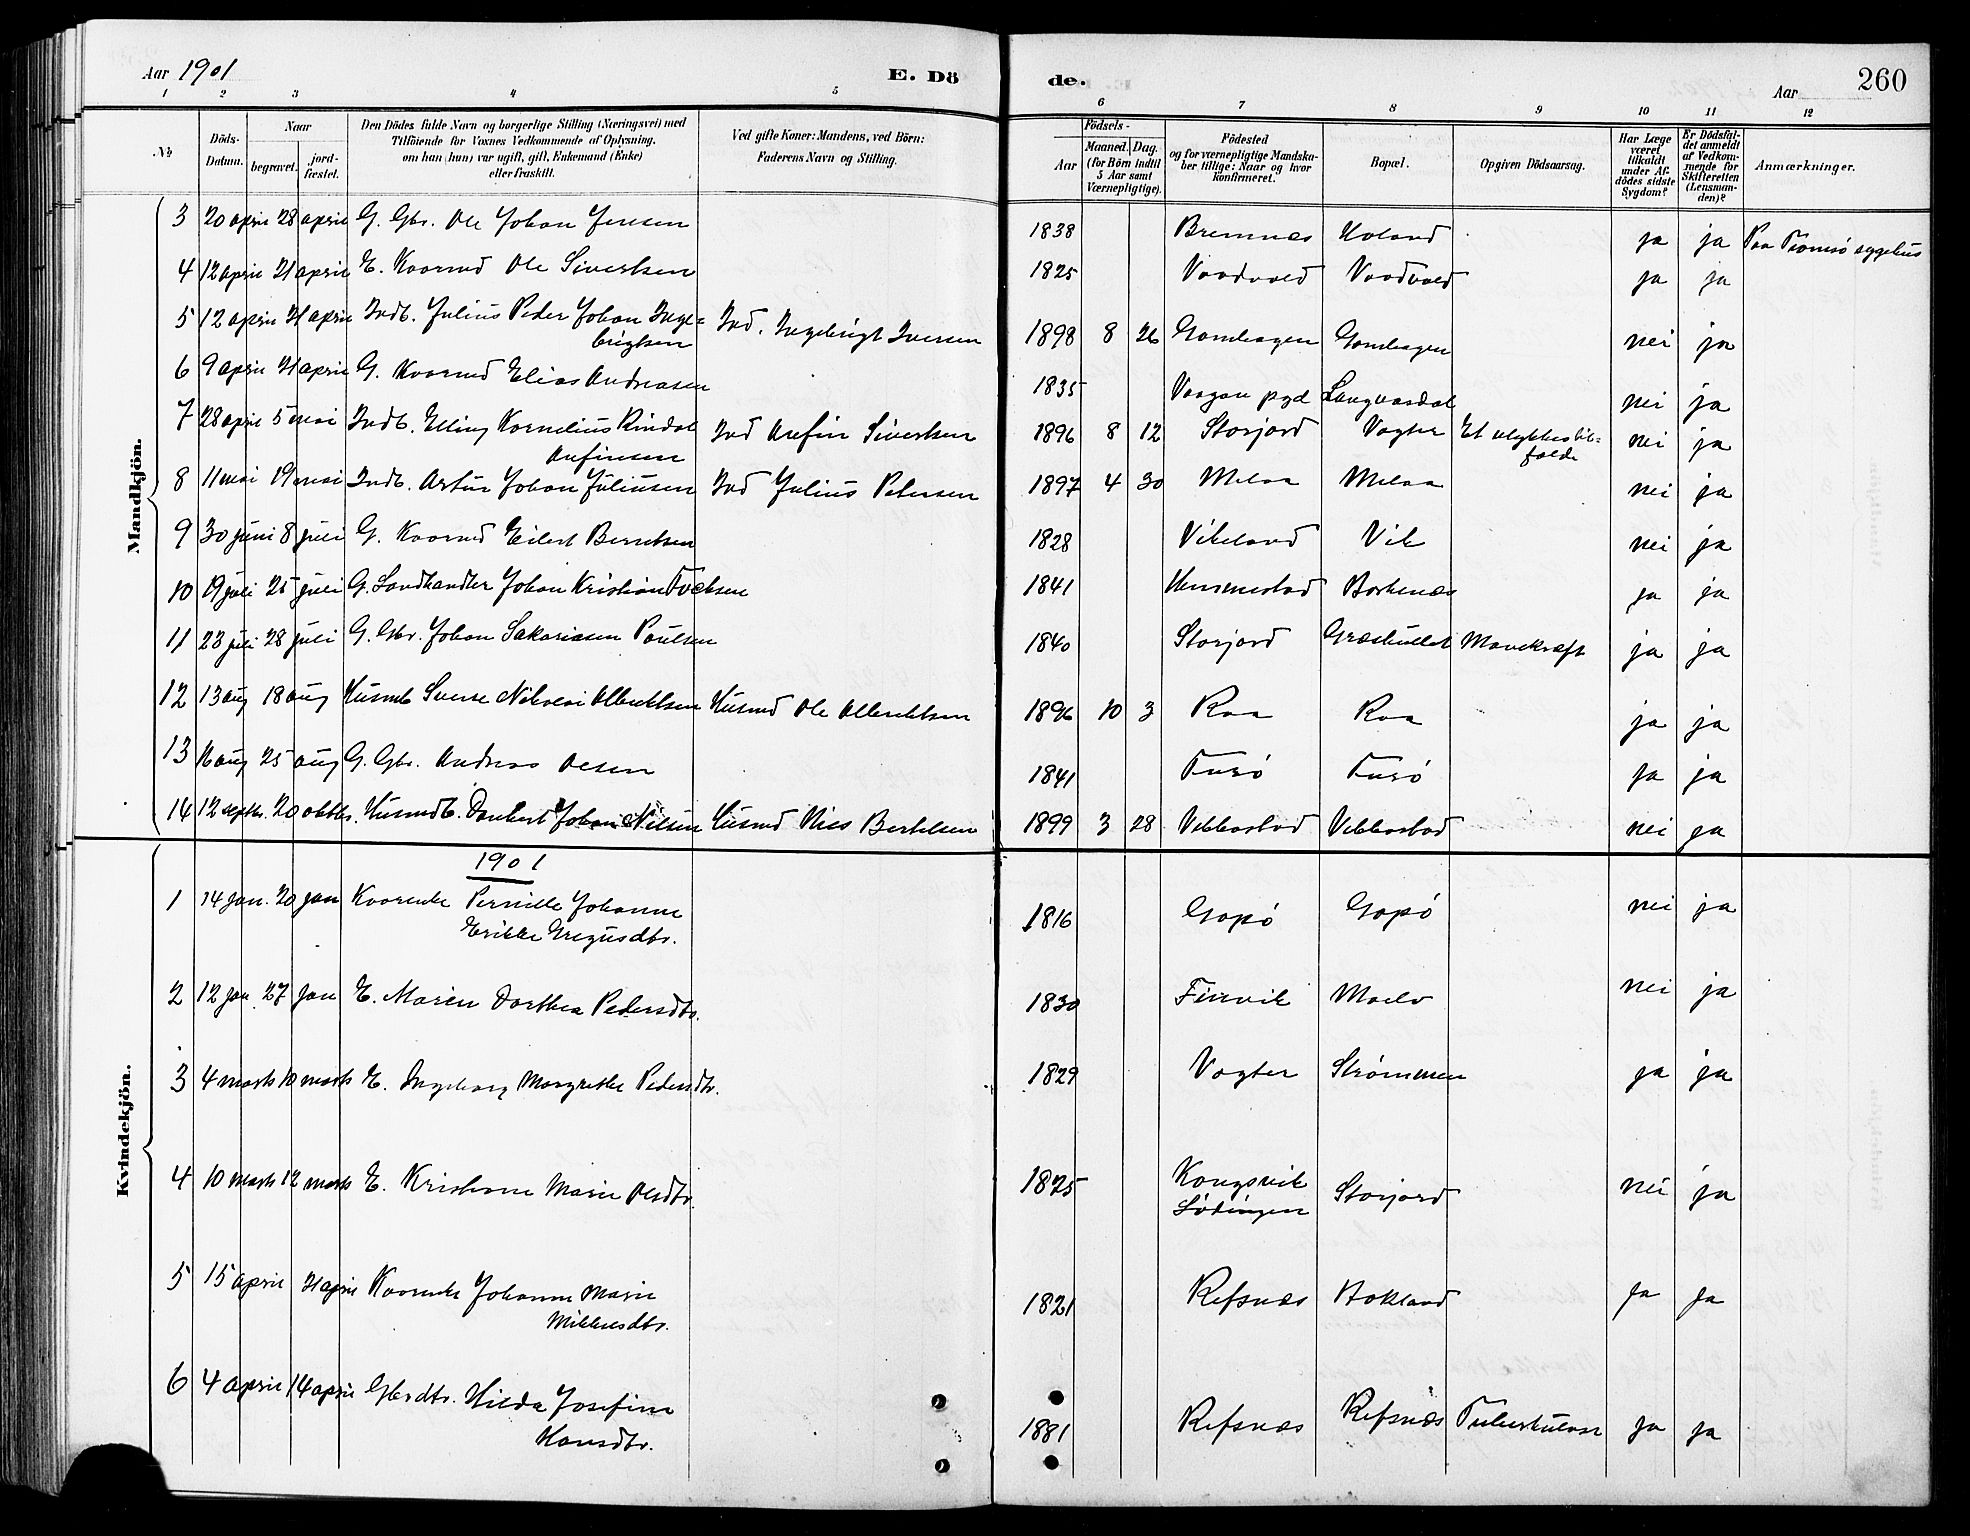 Aar 1901 E. Dö de. Aar 260
1 2 3 4 5 6 7 8 9 10 11 12
№ Döds-Datum. Naar begravet. jord-fæstet.
Den Dödes fulde Navn og borgerlige Stilling (Næringsvei) med
Tilföiende for Voxnes Vedkommende af Oplysning,
om han (hun) var ugift, gift, Enkemand (Enke)
eller fraskilt.
Ved gifte Koner: Mandens, ved Börn:
Faderens Navn og Stilling.
Födsels-
Aar Maaned. Dag.
(for Börn indtil
5 Aar samt
Værnepligtige).
Födested
og for værnepligtige Mandska-
ber tillige: Naar og hvor
konfirmeret.
Bopæl.
Opgiven Dödsaarsag.
Har Læge
været
tilkaldt
under Af-
dödes sidste
Sygdom?
Er Dödsfal-
det anmeldt
af Vedkom-
mende for
Skifteretten
(Lensman-
den)?
Anmærkninger.
Mandkjön.
3 20 april 28 april G. Gbr. Ole Johan Jensen 1838 Bremnæs Holand ja ja Paa Tromsö sygehus
4 12 april 21 april E. Kaarmd Ole Sivertsen 1825 Vaadvold Vaadvold ja ja
5 12 april 21 april Indb. Julius Peder Johan Inge-
brigtsen Ind. Ingebrigt Iversen 1898 8 26 Gamhagen Gamhagen nei ja
6 9 april 21 april G. Kaarmd Elias Andreasen 1835 Vaagan pgd Langvasdal nei ja
7 28 april 5 mai Indb. Elling Kornelius Rindal
Anfinsen Ind Anfin Sivertsen 1896 8 12 Storjord Vogter Et ulykkestil-
fælde nei ja
8 11 mai 19 mai Indb. Artur Johan Juliusen Ind Julius Petersen 1897 4 30 Melaa Melaa nei ja
9 30 juni 8 juli G. Kaarmd Eilert Berntsen 1828 Vikeland Vik nei ja
10 19 juli 25 juli G. Landhandler Johan Kristian Fochsen 1841 Hemmestad Borkenæs ja ja
11 23 juli 28 juli G. Gbr. Johan Sakariasen Paulsen 1840 Storjord Græshullet Mavekræft ja ja
12 13 aug 18 aug Husmb Sverre Nikolai Albriktsen Husmd Ole Albriktsen 1896 10 3 Raa Raa ja ja
13 16 aug 25 aug G. Gbr. Andreas Olsen 1841 Fusö Fusö ja ja
14 12 septbr. 20 oktbr. Husmdb. Dankert Johan Nilsen Husmd Nils Bertelsen 1899 3 28 Vebbostad Vebbostad nei ja
Kvindekjön.
1901
1 14 jan. 20 jan Kaarenke Pernille Johanne
Erikke Gregusdtr. 1816 Gapö Gapö nei ja
2 12 jan. 27 jan E. Maren Dorthea Pedersdtr. 1830 Finvik Maelv nei ja
3 4 marts 10 marts E. Ingeborg Margrethe Pedersdtr. 1829 Vogter Strömmen ja ja
4 10 marts 12 marts E. Kristiane Marie Olsdtr. 1825 Kongsvik
Lödingen Storjord nei ja
5 15 april 21 april Kaarenke Johanne Marie
Mikkelsdtr. 1821 Refsnæs Hokland ja ja
6 4 april 14 april Gbrdtr. Hilda Josefine
Hansdtr. 1881 Refsnæs Refsnæs Tuberkulose ja ja